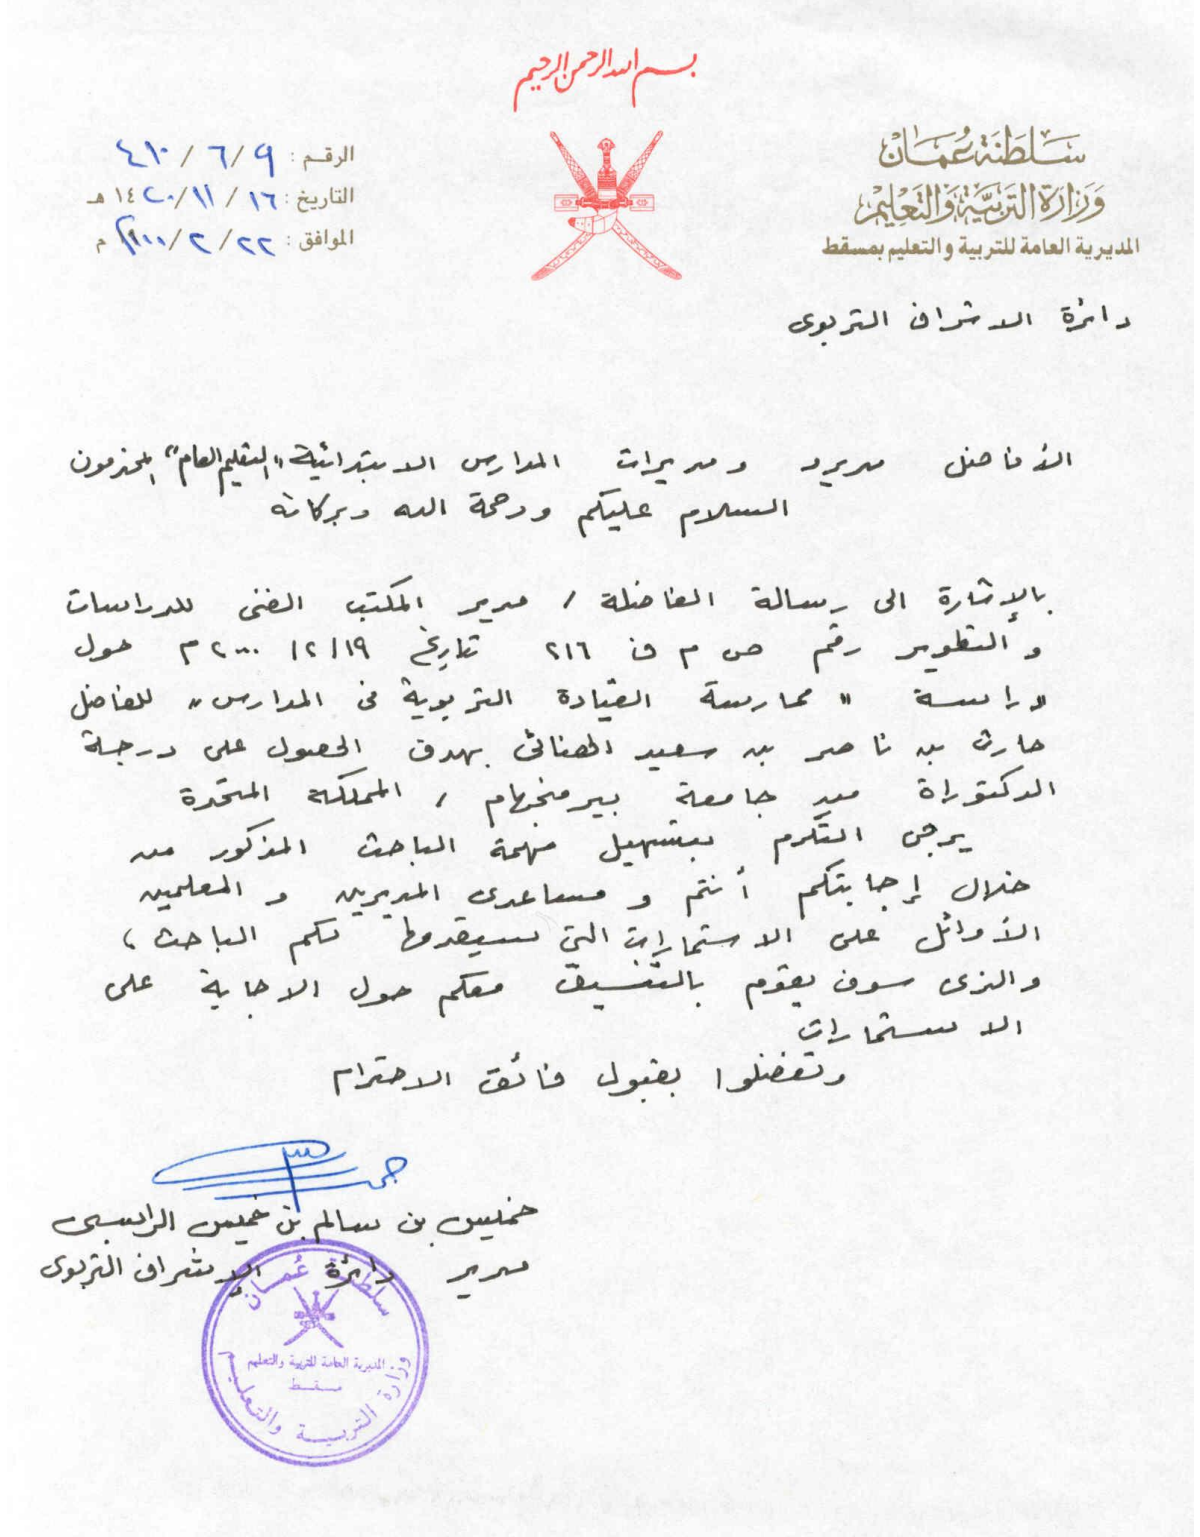 بسم الله الرحمن الرحيم
سلطنة عمان
وزارة التربية والتعليم
المديرية العامة للتربية والتعليم بمسقط
الرقم : ٩ / ٦ / ٤١٠
التاريخ : ١٦ / ١١ / ١٤٢٠ هـ
الموافق : ٢٢ / ٢ / ٢٠٠٠ م
دائرة الاشراف التربوى
الأفاضل مديرو ومديرات المدارس الابتدائية "التعليم العام" المحترمون
السلام عليكم ورحمة الله وبركاته
بالإشارة الى رسالة الفاضلة / مدير المكتب الفنى للدراسات
والتطوير رقم ص م ف ٢١٦ تاريخ ١٩/٢/٢٠٠٠م حول
دراسة " ممارسة القيادة التربوية فى المدارس" للفاضل
حارث بن ناصر بن سعيد الهنائى بهدف الحصول على درجة
الدكتوراة من جامعة بيرمنجهام / المملكة المتحدة
يرجى التكرم بتسهيل مهمة الباحث المذكور من
خلال إجابتكم أنتم و مساعدى المديرين و المعلمين
الأوائل على الاستمارات التى سيقدمها لكم الباحث ،
والذى سوف يقوم بالتنسيق معكم حول الاجابة على
الاستمارات
وتفضلوا بقبول فائق الاحترام
خميس بن سالم بن خميس الراسبى
مدير دائرة الإشراف التربوى
سلطنة عمان
المديرية العامة للتربية والتعليم
مسقط
وزارة التربية والتعليم